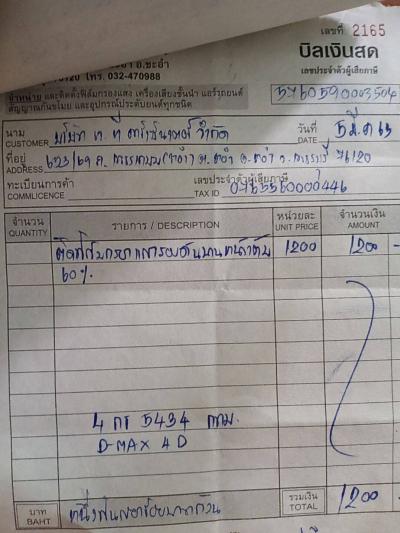 เลขที่ 2165
อ.ชะอำ
บิลเงินสด
76120 โทร. 032-470988
เลขประจำตัวผู้เสียภาษี
จำหน่าย และติดตั้งฟิล์มกรองแสง เครื่องเสียงชั้นนำ แอร์รถยนต์
สัญญาณกันขโมย และอุปกรณ์ประดับยนต์ทุกชนิด
3760590003504
นาม CUSTOMER บริษัท จำกัด วันที่ DATE 5 มี.ค 63
ที่อยู่ ADDRESS 623/69 ต. ชะอำ อ. ชะอำ จ. เพชรบุรี 76120
ทะเบียนการค้า COMMLICENCE เลขประจำตัวผู้เสียภาษี TAX ID 0765560000446
จำนวน QUANTITY รายการ / DESCRIPTION หน่วยละ UNIT PRICE จำนวนเงิน AMOUNT
ติดฟิล์มกรองแสงรอบคัน 1200 1200 -
60%
4 กร 5434 กทม.
D-MAX 4D
บาท BAHT หนึ่งพันสองร้อยบาทถ้วน รวมเงิน TOTAL 1200 -